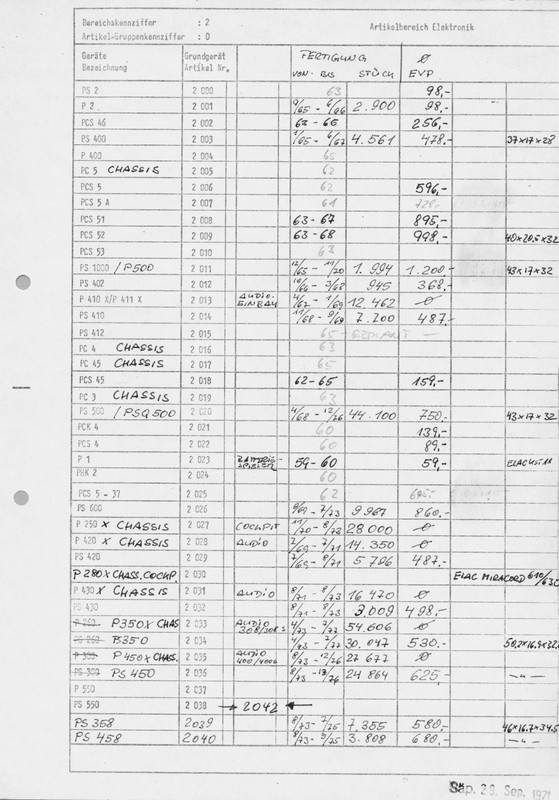 Bereichskennziffer : 2 Artikelbereich Elektronik
Artikel-Gruppenkennziffer : 0
Geräte Grundgerät FERTIGUNG Ø
Bezeichnung Artikel Nr. VON - BIS STÜCK EVP
PS 2 2 000 63 98,-
P 2 2 001 9/65 - 6/66 2.900 98,-
PCS 46 2 002 63 - 66 256,-
PS 400 2 003 1/65 - 6/67 4.561 478,- 37x17x28
P 400 2 004 65
PC 5 CHASSIS 2 005 62
PCS 5 2 006 62 596,-
PCS 5 A 2 007 61 728,-
PCS 51 2 008 63 - 67 895,-
PCS 52 2 009 63 - 68 998,- 40x20,5x32
PCS 53 2 010 63
PS 1000 / P500 2 011 12/65 - 11/70 1.994 1.200,- 43x17x32
PS 402 2 012 10/66 - 3/68 945 368,-
P 410 X/P 411 X 2 013 AUDIO-EINBAU 4/67 - 1/69 12.462 Ø
PS 410 2 014 11/68 - 9/69 7.200 487,-
PS 412 2 015 65 - GEPLANT -
PC 4 CHASSIS 2 016 63
PC 45 CHASSIS 2 017 65
PCS 45 2 018 62 - 65 159,-
PC 3 CHASSIS 2 019 63
PS 500 / PSQ 500 2 020 4/68 - 12/76 44.100 750,- 43x17x32
PCK 4 2 021 60 139,-
PCS 4 2 022 60 89,-
P 1 2 023 BATTERIE-SPIELER 59 - 60 59,-
PHK 2 2 024 60
PCS 5 - 37 2 025 62
PS 600 2 026 9/69 - 7/73 9967 860,-
P 250 X CHASSIS 2 027 COCKPIT 11/70 - 8/73 28 000 Ø
P 420 X CHASSIS 2 028 AUDIO 7/69 - 7/71 14.350 Ø
PS 420 2 029 7/69 - 8/71 5 796 487,-
P 280X CHASS. COCKP. 2 030 ELAC MIRACORD 610/630
P 430 X CHASSIS 2 031 AUDIO 8/71 - 8/73 16 470 Ø
PS 430 2 032 8/71 - 8/73 3 009 498,-
P 260 P350 X CHAS 2 033 AUDIO 308/308 S 4/73 - 7/77 54.606 Ø
PS 260 PS350 2 034 4/73 - 7/77 30.047 530,- 50,2x16,9x32
P 300 P450 X CHAS. 2 035 AUDIO 400/4006 8/73 - 12/76 27 677 Ø
PS 300 PS 450 2 036 8/73 - 12/76 24 864 625,- -"-
P 550 2 037
PS 550 2 038 → 2042 ←
PS 358 2039 8/73 - 7/75 7.355 580,- 46x16.7x34.5
PS 458 2040 8/73 - 9/75 3.808 680,- -"-